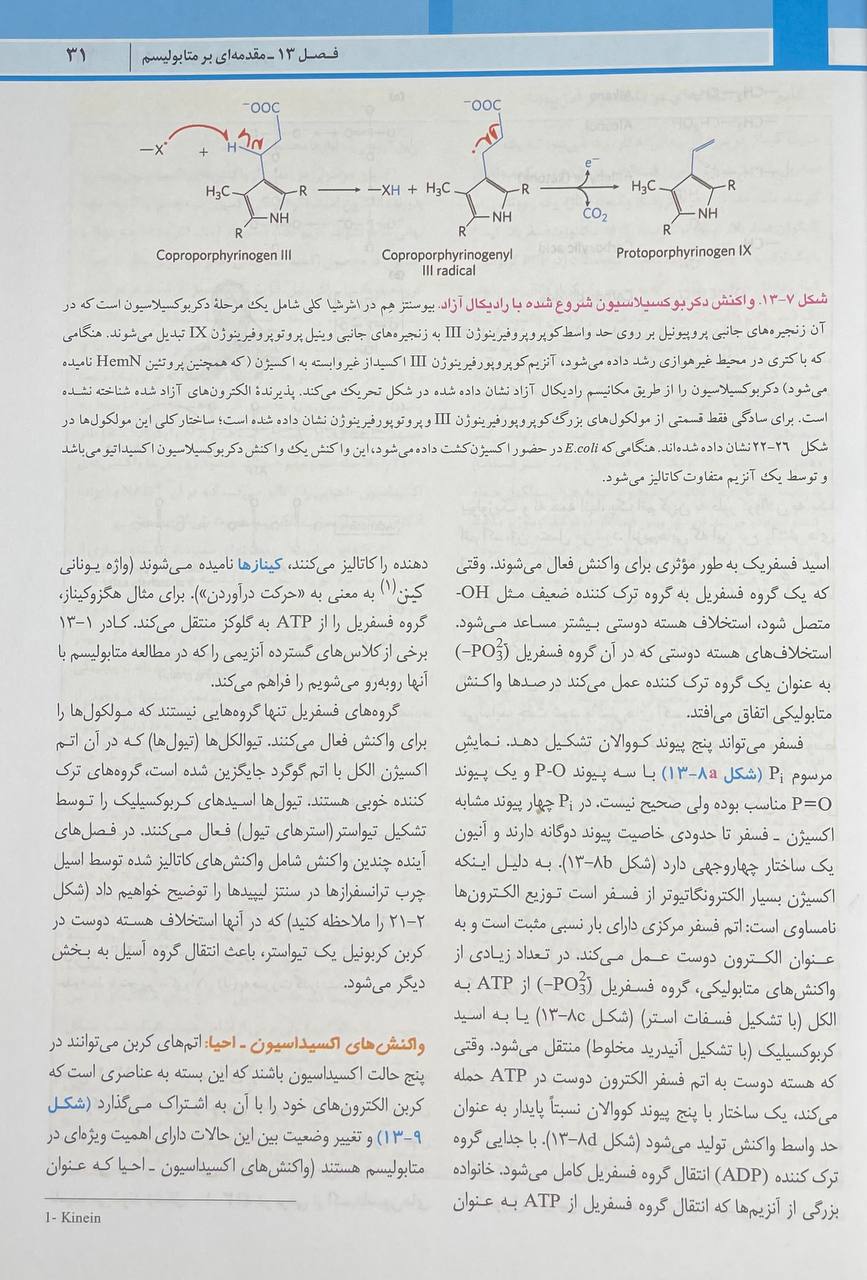 فصل ۱۳ ـ مقدمه‌ای بر متابولیسم ۳۱
⁻OOC
⁻OOC
—X• + H
H₃C R NH R
—XH + H₃C R NH R
e⁻
CO₂
H₃C R NH R
Coproporphyrinogen III
Coproporphyrinogenyl
III radical
Protoporphyrinogen IX
شکل ۷-۱۳. واکنش دکربوکسیلاسیون شروع شده با رادیکال آزاد. بیوسنتز هِم در اشرشیا کلی شامل یک مرحلهٔ دکربوکسیلاسیون است که در
آن زنجیره‌های جانبی پروپیونیل بر روی حد واسط کوپروپروفیرینوژن III به زنجیره‌های جانبی وینیل پروتوپروفیرینوژن IX تبدیل می‌شوند. هنگامی
که باکتری در محیط غیرهوازی رشد داده می‌شود، آنزیم کوپروپورفیرینوژن III اکسیداز غیروابسته به اکسیژن (که همچنین پروتئین HemN نامیده
می‌شود) دکربوکسیلاسیون را از طریق مکانیسم رادیکال آزاد نشان داده شده در شکل تحریک می‌کند. پذیرندهٔ الکترون‌های آزاد شده شناخته نشده
است. برای سادگی فقط قسمتی از مولکول‌های بزرگ کوپروپورفیرینوژن III و پروتوپورفیرینوژن نشان داده شده است؛ ساختار کلی این مولکول‌ها در
شکل ۲۶-۲۲ نشان داده شده‌اند. هنگامی که E.coli در حضور اکسیژن کشت داده می‌شود، این واکنش یک واکنش دکربوکسیلاسیون اکسیداتیو می‌باشد
و توسط یک آنزیم متفاوت کاتالیز می‌شود.
اسید فسفریک به طور مؤثری برای واکنش فعال می‌شوند. وقتی
که یک گروه فسفریل به گروه ترک کننده ضعیف مثل OH-
متصل شود، استخلاف هسته دوستی بیشتر مساعد می‌شود.
استخلاف‌های هسته دوستی که در آن گروه فسفریل (−PO₃²⁻)
به عنوان یک گروه ترک کننده عمل می‌کند در صدها واکنش
متابولیکی اتفاق می‌افتد.
فسفر می‌تواند پنج پیوند کووالان تشکیل دهد. نمایش
مرسوم Pᵢ (شکل ۱۳-۸a) با سه پیوند P-O و یک پیوند
P=O مناسب بوده ولی صحیح نیست. در Pᵢ چهار پیوند مشابه
اکسیژن ـ فسفر تا حدودی خاصیت پیوند دوگانه دارند و آنیون
یک ساختار چهاروجهی دارد (شکل ۱۳-۸b). به دلیل اینکه
اکسیژن بسیار الکترونگاتیوتر از فسفر است توزیع الکترون‌ها
نامساوی است: اتم فسفر مرکزی دارای بار نسبی مثبت است و به
عنوان الکترون دوست عمل می‌کند. در تعداد زیادی از
واکنش‌های متابولیکی، گروه فسفریل (−PO₃²⁻) از ATP به
الکل (با تشکیل فسفات استر) (شکل ۱۳-۸c) یا به اسید
کربوکسیلیک (با تشکیل آنیدرید مخلوط) منتقل می‌شود. وقتی
که هسته دوست به اتم فسفر الکترون دوست در ATP حمله
می‌کند، یک ساختار با پنج پیوند کووالان نسبتاً پایدار به عنوان
حد واسط واکنش تولید می‌شود (شکل ۱۳-۸d). با جدایی گروه
ترک کننده (ADP) انتقال گروه فسفریل کامل می‌شود. خانواده
بزرگی از آنزیم‌ها که انتقال گروه فسفریل از ATP به عنوان
دهنده را کاتالیز می‌کنند، کینازها نامیده می‌شوند (واژه یونانی
کین(۱) به معنی به «حرکت درآوردن»). برای مثال هگزوکیناز،
گروه فسفریل را از ATP به گلوکز منتقل می‌کند. کادر ۱-۱۳
برخی از کلاس‌های گسترده آنزیمی را که در مطالعه متابولیسم با
آنها روبه‌رو می‌شویم را فراهم می‌کند.
گروه‌های فسفریل تنها گروه‌هایی نیستند که مولکول‌ها را
برای واکنش فعال می‌کنند. تیوالکل‌ها (تیول‌ها) که در آن اتم
اکسیژن الکل با اتم گوگرد جایگزین شده است، گروه‌های ترک
کننده خوبی هستند. تیول‌ها اسیدهای کربوکسیلیک را توسط
تشکیل تیواستر (استرهای تیول) فعال می‌کنند. در فصل‌های
آینده چندین واکنش شامل واکنش‌های کاتالیز شده توسط اسیل
چرب ترانسفرازها در سنتز لیپیدها را توضیح خواهیم داد (شکل
۲-۲۱ را ملاحظه کنید) که در آنها استخلاف هسته دوست در
کربن کربونیل یک تیواستر، باعث انتقال گروه آسیل به بخش
دیگر می‌شود.
واکنش‌های اکسیداسیون ـ احیا: اتم‌های کربن می‌توانند در
پنج حالت اکسیداسیون باشند که این بسته به عناصری است که
کربن الکترون‌های خود را با آن به اشتراک می‌گذارد (شکل
۹-۱۳) و تغییر وضعیت بین این حالات دارای اهمیت ویژه‌ای در
متابولیسم هستند (واکنش‌های اکسیداسیون ـ احیا که به عنوان
1- Kinein